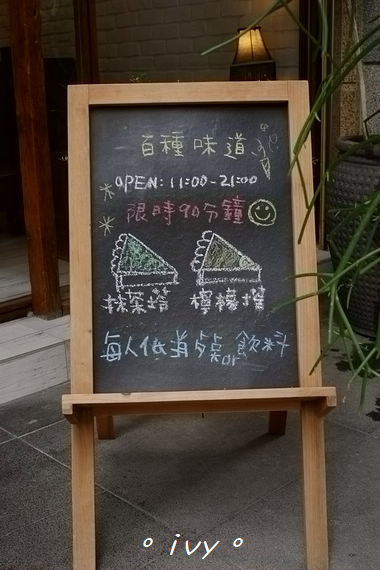 一百種味道
OPEN: 11:00-21:00
限時90分鐘
抹茶塔 檸檬塔
每人低消 点 or 飲料
° ivy °